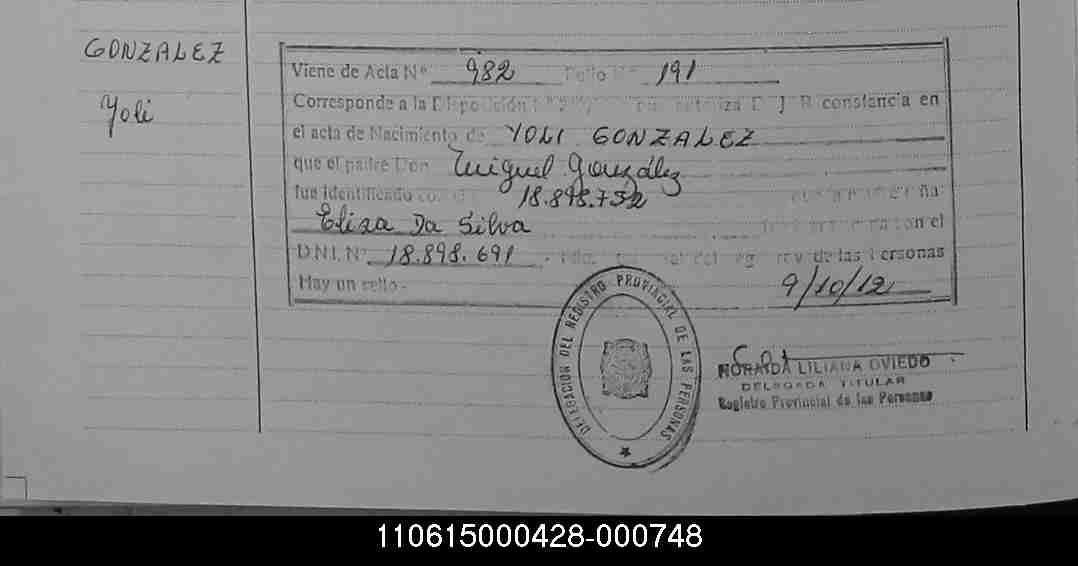 GONZALEZ
Yoli
Viene de Acta Nº 982 Folio Nº 191
Corresponde a la Disposición constancia en
el acta de Nacimiento de YOLI GONZALEZ
que el padre Don Miguel González
fue identificado con el 18.898.752
Eliza Da Silva con el
D.N.I. Nº 18.898.691 de las Personas
Hay un sello.- 9/10/12
DELEGACION DEL REGISTRO PROVINCIAL DE LAS PERSONAS
LILIANA OVIEDO
DELEGADA TITULAR
Registro Provincial de las Personas
110615000428-000748